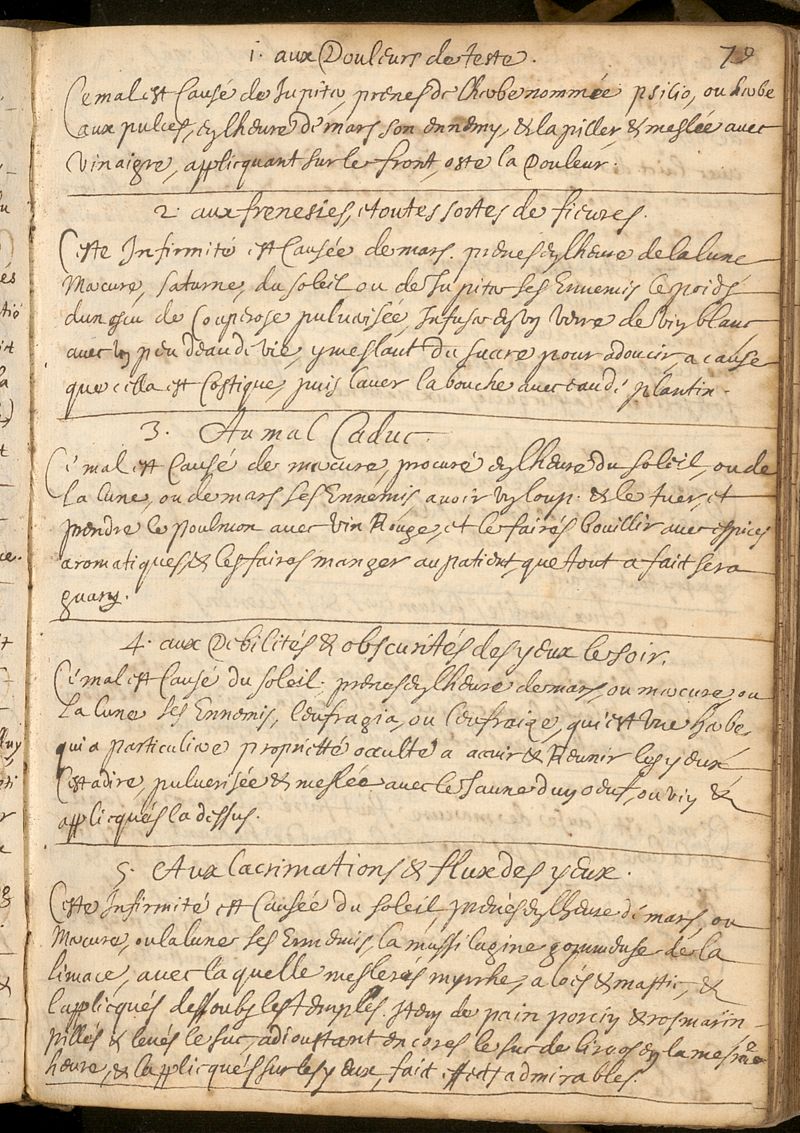 1. aux Douleurs de teste.
79
Ce mal est Causé de Jupiter, prenes de lherbe nommée psilio, ou herbe
aux pulces, en lheure de mars son ennemy, & la piller & meslée avec
vinaigre, applicquant sur le front, oste la Douleur.
2. aux frenesies, et outes sortes de fieures.
Ceste Infirmité est Causée de mars. prenes en lheure de la lune
Mercure, saturne, du soleil ou de Jupiter ses Ennemis le poids
dun escu de Couperose pulverisée, Infuser en un verre de vin blanc
avec un peu deau de vie, y meslant du sucre pour adoucir, a cause
que cella est Costique, puis laver la bouche avec eau de plantin.
3. Au mal Caduc.
Cé mal est Causé de mercure, procuré en lheure du soleil, ou de
La lune, ou de mars ses Ennemis avoir un loup. & le tuer, et
prendre le poulmon avec vin Rouge, et le faires bouillir avec espices
aromatiques, & les faires manger au patient, que tout a fait sera
guary.
4. aux Debilités & obscurités des yeux le soir.
Cé mal est Causé du soleil. prenes en lheure de mars, ou mercure ou
La lune ses Ennemis, leufragia, ou leufraize, qui est une herbe,
qui a particuliere proprietté occulte a acuir & Reunir les yeux
Cest a dire pulverisée & meslée avec le Jaune dun oeuf, ou vin &
applicqués la dessus.
5. Aux Lacrimations & flux des yeux.
Ceste Infirmité est Causée du soleil prenés en lheure de mars, ou
Mercure, ou la lune ses Ennemis, la mussilagine gommeuse de la
limace, avec laquelle meslerés myrrhe, aloës & mastic, &
lapplicqués dessoubs les temples. Item de pain porcin & rosmarin
pillés & levés le suc, adioustant encores le suc de en la mesme
heure, & lapplicqués sur les yeux, fait effect admirables.